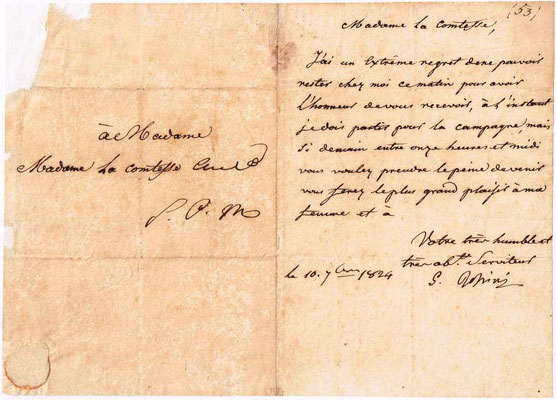 à Madame
Madame la comtesse
S. P. M
(53)
Madame la Comtesse,
J'ai un Extrême regret de ne pouvoir
rester chez moi ce matin pour avoir
L'honneur de vous recevoir, à l'instant
je dois partir pour la campagne, mais
Si demain entre onze heures et midi
vous voulez prendre la peine de venir
vous ferez le plus grand plaisir à ma
femme et à
Votre très humble et
très ob.t Serviteur
le 10. 7bre 1824
G.